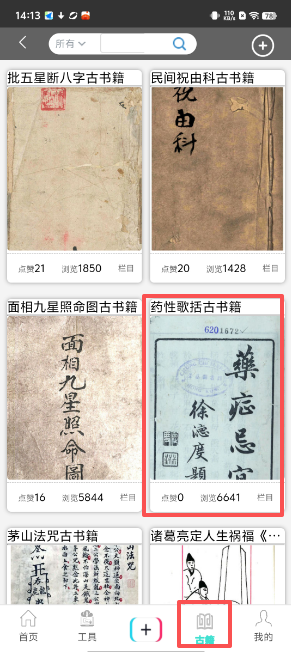 14:13
110 KB/s
78
所有
批五星断八字古书籍
民间祝由科古书籍
祝由科
点赞21 浏览1850 栏目
点赞20 浏览1428 栏目
面相九星照命图古书籍
药性歌括古书籍
面相九星照命圖
6201672
藥症忌宜
徐滤度題
点赞16 浏览5844 栏目
点赞0 浏览6641 栏目
茅山法咒古书籍
诸葛亮定人生祸福《…
茅山法咒
首页
工具
+
古籍
我的